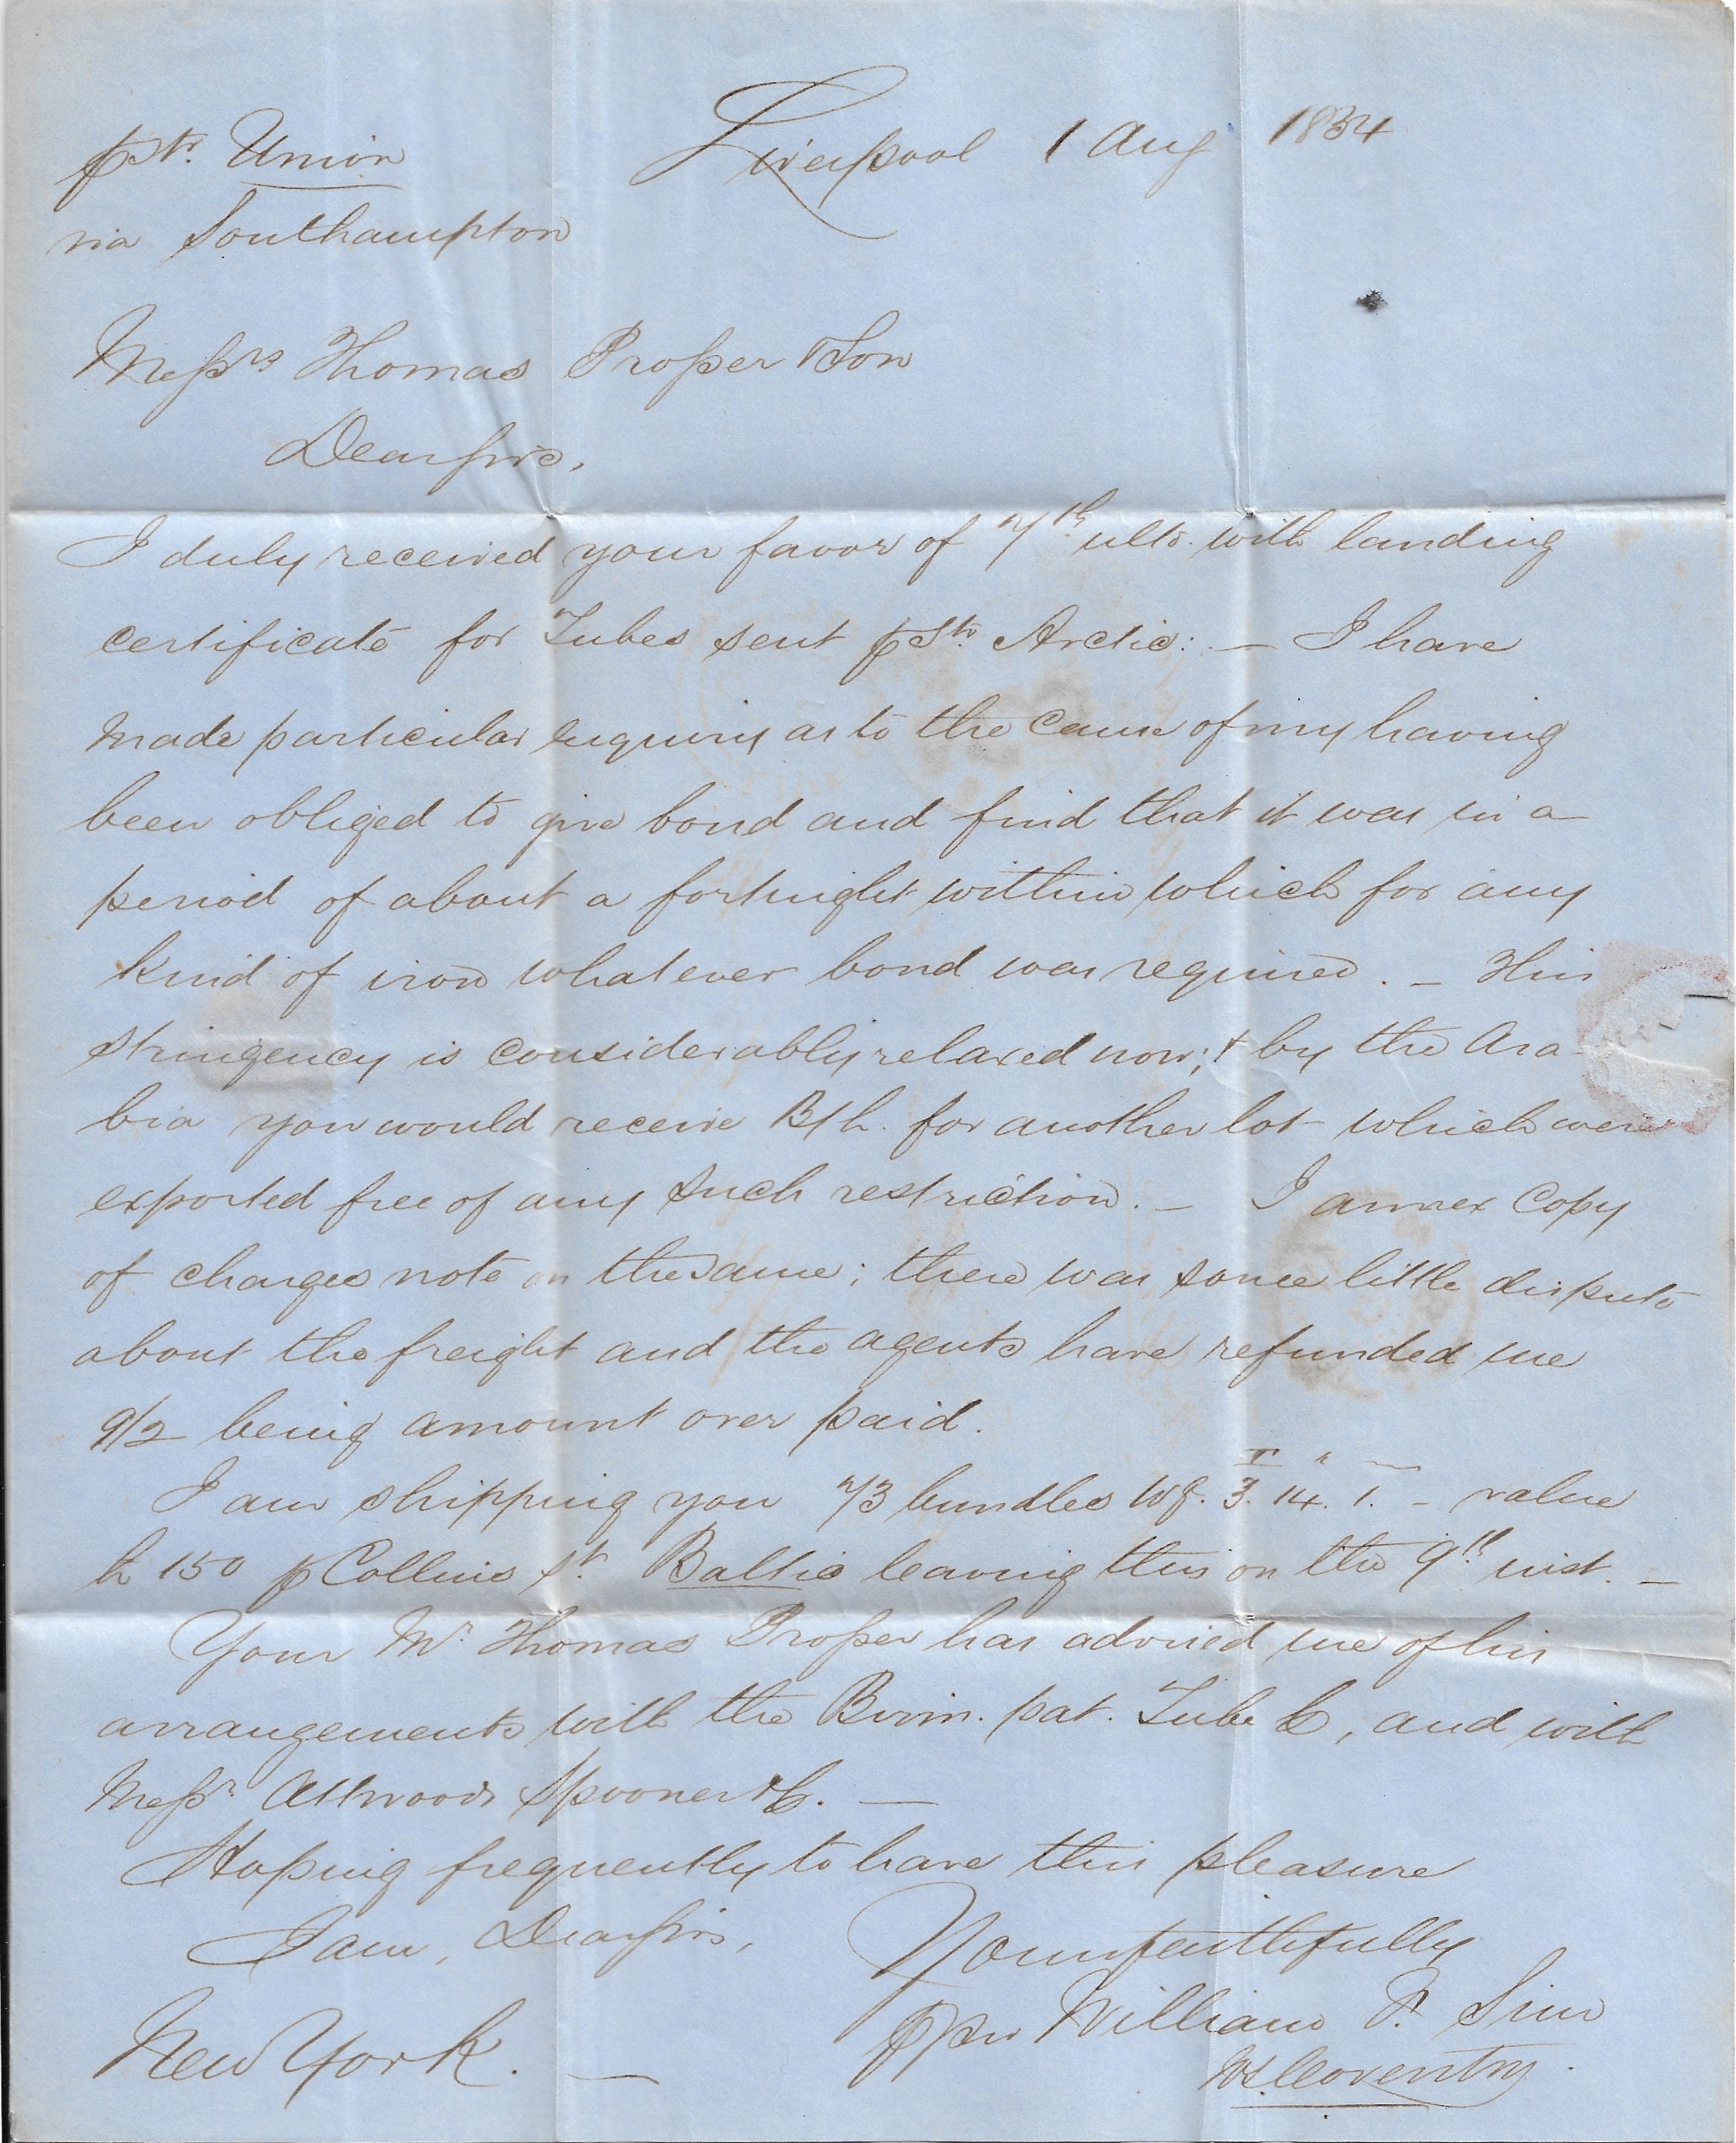 p Str. Union Liverpool 1 Aug 1854
via Southampton
Messrs Thomas Prosser & Son
Dear Sirs,
I duly received your favor of 7th ulto. with landing
certificate for Tubes sent p Str. Arctic: — I have
made particular enquiry as to the cause of my having
been obliged to give bond and find that it was in a
period of about a fortnight within which for any
kind of iron whatever bond was required. — This
stringency is considerably relaxed now; & by the Ara-
bia you would receive B/L. for another lot which were
exported free of any such restriction. — I annex Copy
of charges note on the same; there was some little dispute
about the freight and the agents have refunded me
9/2 being amount over paid.
I am shipping you 73 bundles wg. 3. 14. 1. — value
£150 p Collins St. Baltic leaving this on the 9th inst. —
Your Mr Thomas Prosser has advised me of his
arrangements with the Birm. pat. Tube Co, and with
Messrs Attwoods Spooner & Co. —
Hoping frequently to have this pleasure
I am, Dear Sirs, Yours faithfully
p pro William P. Sim
New York. — Wm. Coventry.